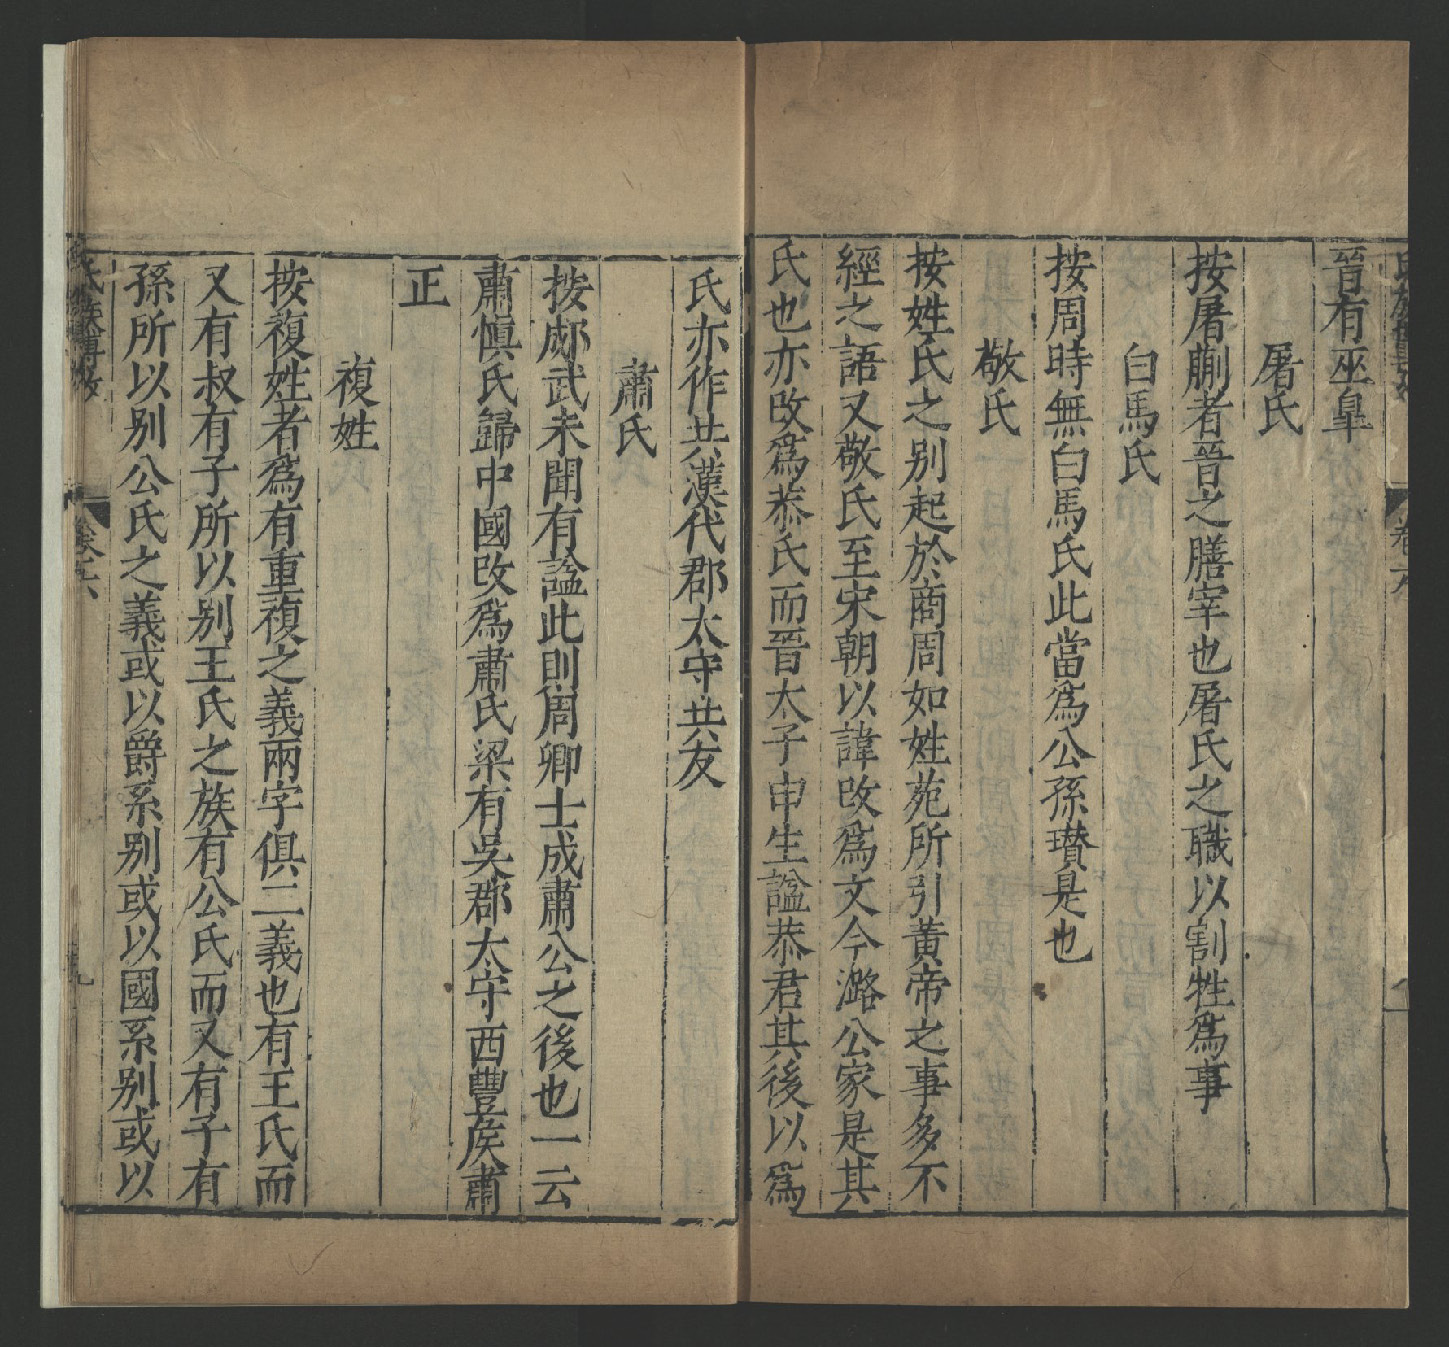 晉有巫臯
屠氏
按屠蒯者晉之膳宰也屠氏之職以割牲爲事
白馬氏
按周時無白馬氏此當爲公孫瓉是也
敬氏
按姓氏之别起於商周如姓苑所引黃帝之事多不
經之語又敬氏至宋朝以諱改爲文今潞公家是其
氏也亦改爲恭氏而晉太子申生謚恭君其後以爲
氏亦作共漢代郡太守共友
肅氏
按郕武未聞有謚此則周卿士成肅公之後也一云
肅慎氏歸中國改爲肅氏梁有吳郡太守西豐矦肅
正
複姓
按複姓者爲有重複之義兩字俱二義也有王氏而
又有叔有子所以别王氏之族有公氏而又有子有
孫所以别公氏之義或以爵系别或以國系别或以